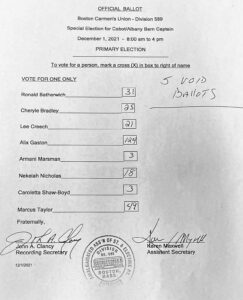 OFFICIAL BALLOT
Boston Carmen's Union - Division 589
Special Election for Cabot/Albany Barn Captain
December 1, 2021 - 8:00 am to 4 pm
PRIMARY ELECTION
To vote for a person, mark a cross (X) in box to right of name
VOTE FOR ONE ONLY
5 VOID
BALLOTS
Ronald Batherwich 31
Cheryle Bradley 25
Lee Creech 21
Alix Gaston 124
Armani Marsman 3
Nekeiah Nicholas 18
Caroletta Shaw-Boyd 3
Marcus Taylor 49
Fraternally,
John A. Clancy
Recording Secretary
Karen Maxwell
Assistant Secretary
12/1/2021
BOSTON,
MASS.